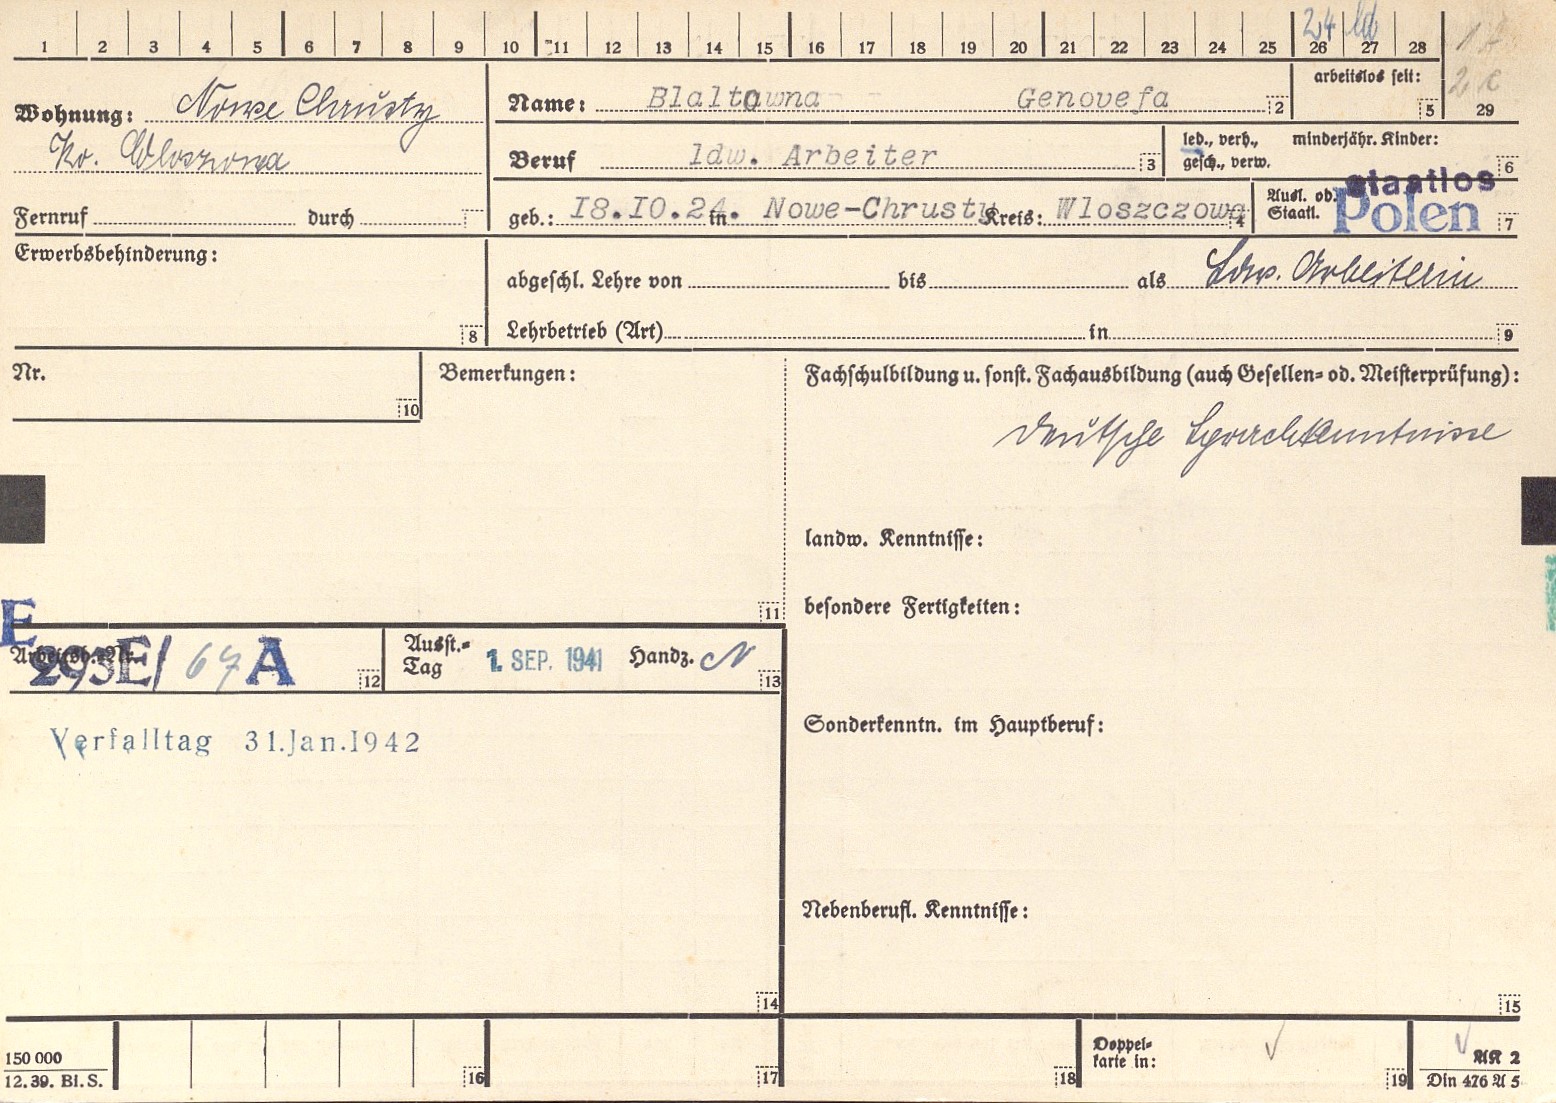 1 2 3 4 5 6 7 8 9 10 11 12 13 14 15 16 17 18 19 20 21 22 23 24 25 26 27 28
24 ld
Wohnung: Nowe Chrusty
Kr. Wloszczowa
Name: Blaltawna Genovefa 2
arbeitslos seit: 5
29
Beruf ldw. Arbeiter 3
led., verh., gesch., verw.
minderjähr. Kinder: 6
Fernruf durch
geb.: I8.I0.24. in Nowe-Chrusty Kreis: Wloszczowa 4
Ausl. od. Staatl. staatlos Polen 7
Erwerbsbehinderung: 8
abgeschl. Lehre von bis als Ldw. Arbeiterin
Lehrbetrieb (Art) in 9
Nr. 10
Bemerkungen: 11
Fachschulbildung u. sonst. Fachausbildung (auch Gesellen- od. Meisterprüfung):
Deutsche Sprachkenntnisse
landw. Kenntnisse:
besondere Fertigkeiten:
E
Arbeitsb.-Nr. 293E/ 67 A 12
Ausst.-Tag 1. SEP. 1941 Handz. N 13
Verfalltag 31.Jan.1942
Sonderkenntn. im Hauptberuf:
Nebenberufl. Kenntnisse:
14 15
150 000
12. 39. Bl. S.
16 17 18
Doppelkarte in: 19
AK 2
Din 476 A 5